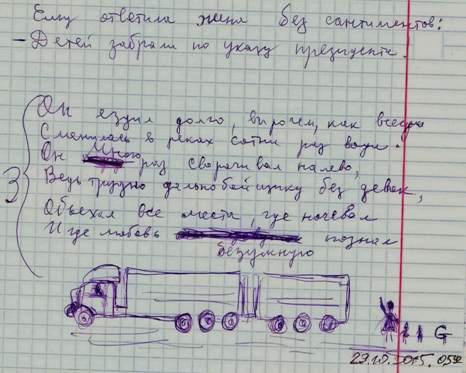 Ему ответила жена без сантиментов:
– Детей забрали по указу президента.
Он ездил долго, впрочем, как всегда
Сменилась в реках сотни раз вода.
Он много раз сворачивал налево,
Ведь трудно дальнобойщику без девок,
Объехал все места, где ночевал
И где любовь безумную познал
3
G
29.10.2015. 05